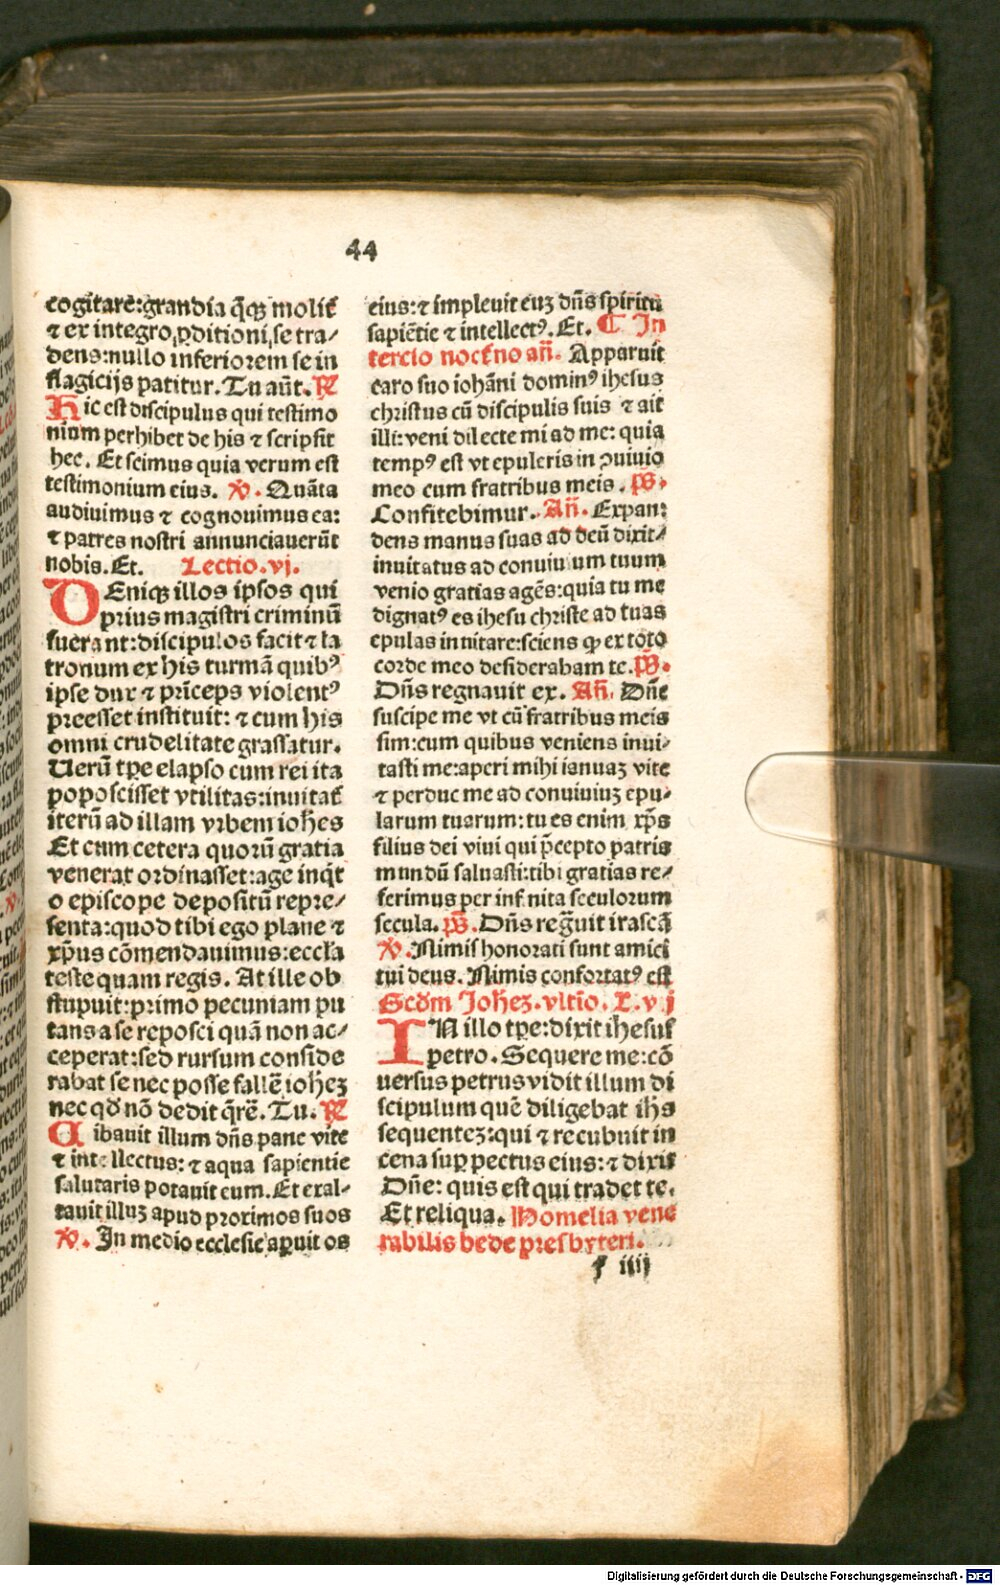 44
cogitare:grandia q̄qꝫ molit̄
⁊ ex integro ꝓditioni se tra⸗
dens:nullo inferiorem se in
flagicijs patitur. Tu aūt. ℞
Hic est discipulus qui testimo
nium perhibet de his ⁊ scripsit
hec. Et scimus quia verum est
testimonium eius. ℣. Quāta
audiuimus ⁊ cognouimus ea:
⁊ patres nostri annunciauerūt
nobis. Et. Lectio. vj.
DEniqꝫ illos ipsos qui
prius magistri criminū
fuerant:discipulos facit ⁊ la
tronum ex his turmā quibꝰ
ipse dux ⁊ prīceps violentꝰ
preesset instituit: ⁊ cum his
omni crudelitate grassatur.
Uerū tꝑe elapso cum rei ita
poposcisset vtilitas:inuitat̄
iterū ad illam vrbem ioh̄es
Et cum cetera quorū gratia
venerat ordinasset:age inq̄t
o episcope depositū repre⸗
senta:quod tibi ego plane ⁊
xp̄us cōmendauimus:eccl̄a
teste quam regis. At ille ob
stupuit:primo pecuniam pu
tans a se reposci quā non ac⸗
ceperat:sed rursum conside
rabat se nec posse fallē ioh̄eꝫ
nec qđ nō dedit q̄rē. Tu. ℞
Cibauit illum dn̄s pane vite
⁊ intellectus: ⁊ aqua sapientie
salutaris potauit eum. Et exal⸗
tauit illuꝫ apud proximos suos
℣. In medio ecclesie aꝑuit os
eius:⁊ impleuit euꝫ dn̄s spiritu
sapiētie ⁊ intellectꝰ. Et. ¶ In
tercio nocṫno an̄. Apparuit
caro suo iohāni dominꝰ ihesus
christus cū discipulis suis ⁊ ait
illi:veni dilecte mi ad me: quia
tempꝰ est vt epuleris in ꝯuiuio
meo cum fratribus meis. p̄s.
Confitebimur. An̄. Expan⸗
dens manus suas ad deū dixit⸗
inuitatus ad conuiuium tuum
venio gratias agēs:quia tu me
dignatꝰ es ihesu christe ad tuas
epulas inuitare:sciens ꝙ ex toto
corde meo desiderabam te. p̄s.
Dn̄s regnauit ex. An̄. Dn̄e
suscipe me vt cū fratribus meis
sim:cum quibus veniens inui⸗
tasti me:aperi mihi ianuaꝫ vite
⁊ perduc me ad conuiuiuꝫ epu⸗
larum tuarum:tu es enim xp̄s
filius dei viui qui p̄cepto patris
mundū saluasti:tibi gratias re⸗
ferimus per infinita seculorum
secula. p̄s. Dn̄s regn̄uit irascā
℣. Nimis honorati sunt amici
tui deus. Nimis confortatꝰ est
Scđm Joh̄eꝫ. vltīo. L. vj
IN illo tꝑe:dixit ihesus
petro. Sequere me:cō
uersus petrus vidit illum di
scipulum quē diligebat ih̄s
sequenteꝫ:qui ⁊ recubuit in
cena suꝑ pectus eius:⁊ dixit
Dn̄e: quis est qui tradet te.
Et reliqua. Homelia vene
rabilis bede presbyteri.
f iiij
Digitalisierung gefördert durch die Deutsche Forschungsgemeinschaft - DFG